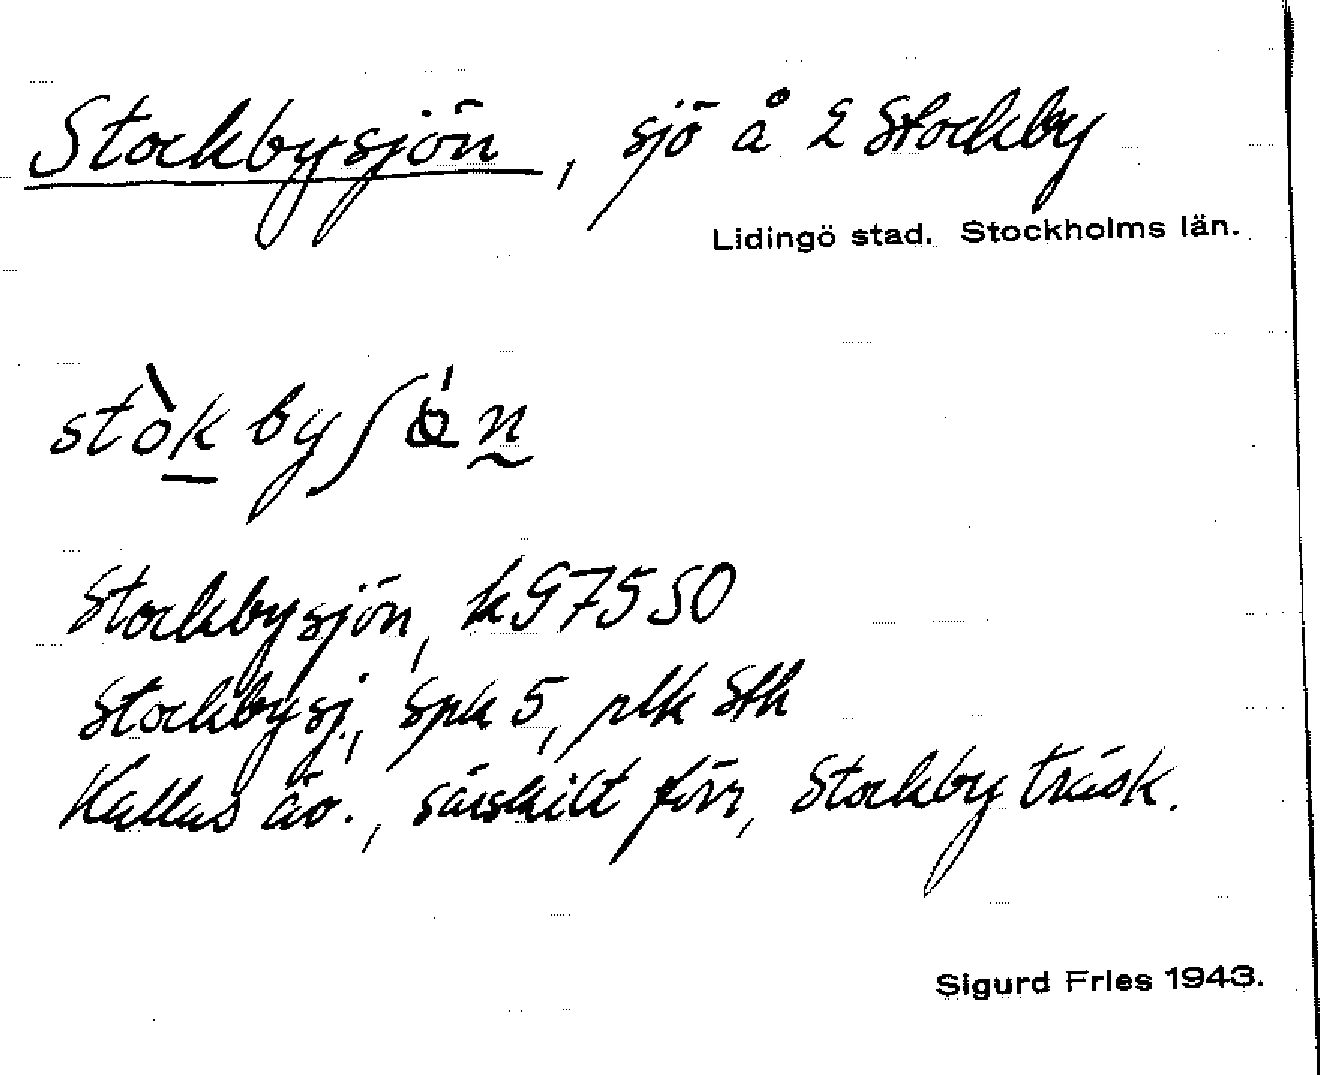 Stockbysjön, sjö å 2 Stockby
Lidingö stad. Stockholms län.
Stockbysjön, k 97550
Stockbysj., Spk 5, plk Sth
Kallas äv., särskilt förr, Stockby träsk.
Sigurd Fries 1943.